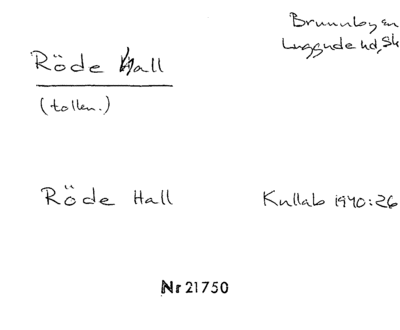 Brunnby sn
Luggude hd, Sk
Röde Hall
(tolkn.)
Röde Hall
Kullab 1940:26
Nr 21750